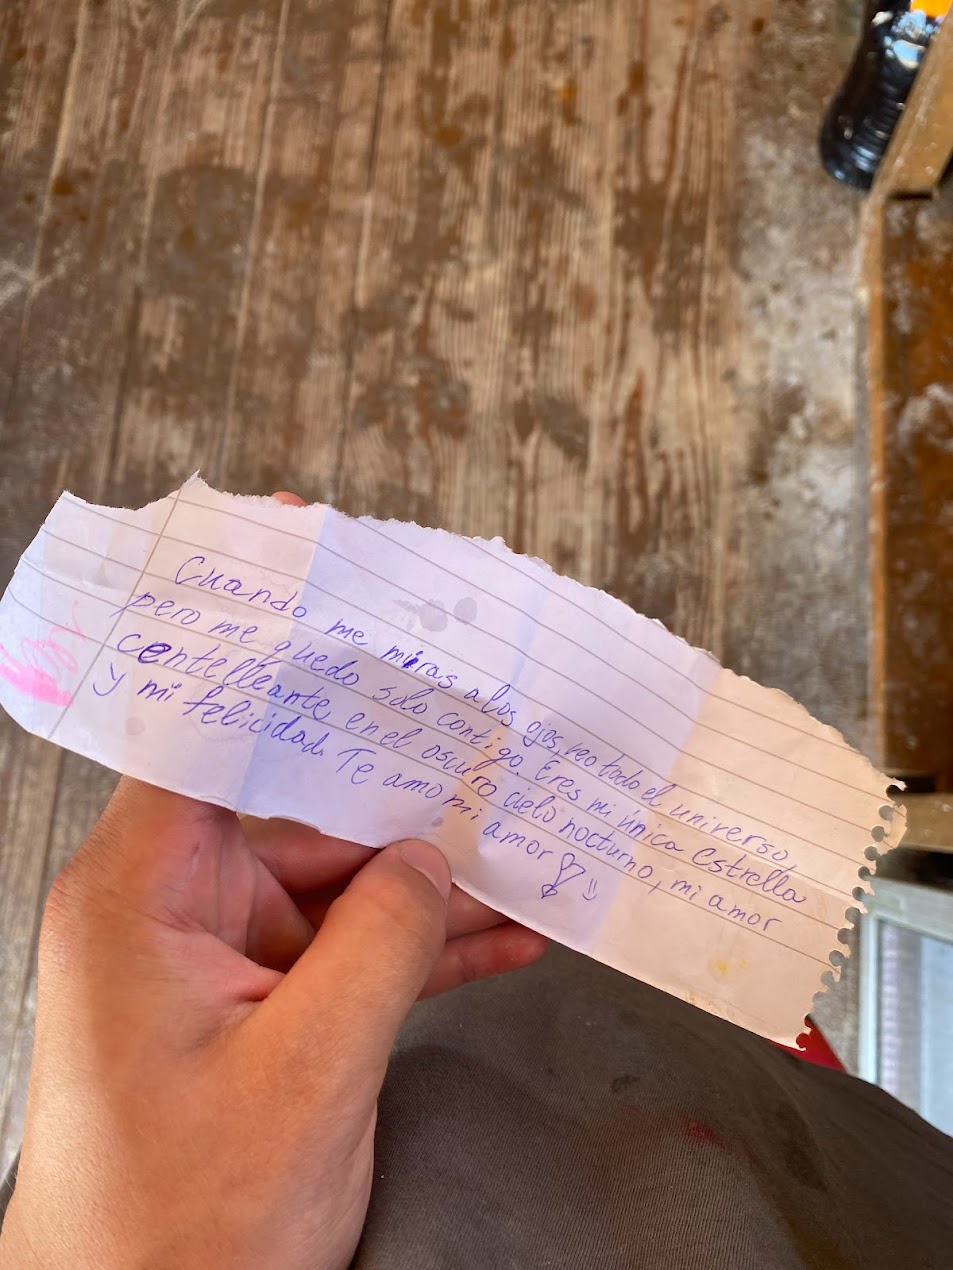 Cuando me miras a los ojos, veo todo el universo,
pero me quedo solo contigo. Eres mi única estrella
centelleante en el oscuro cielo nocturno, mi amor
y mi felicidad. Te amo mi amor